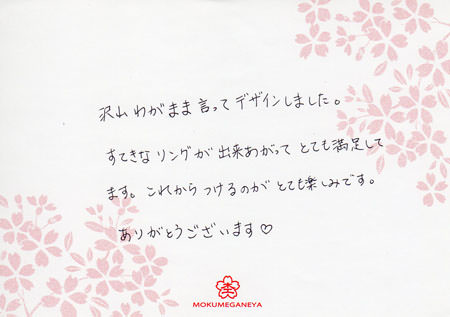 沢山わがまま言ってデザインしました。
すてきなリングが出来あがってとても満足して
ます。これからつけるのがとても楽しみです。
ありがとうございます♡
MOKUMEGANEYA